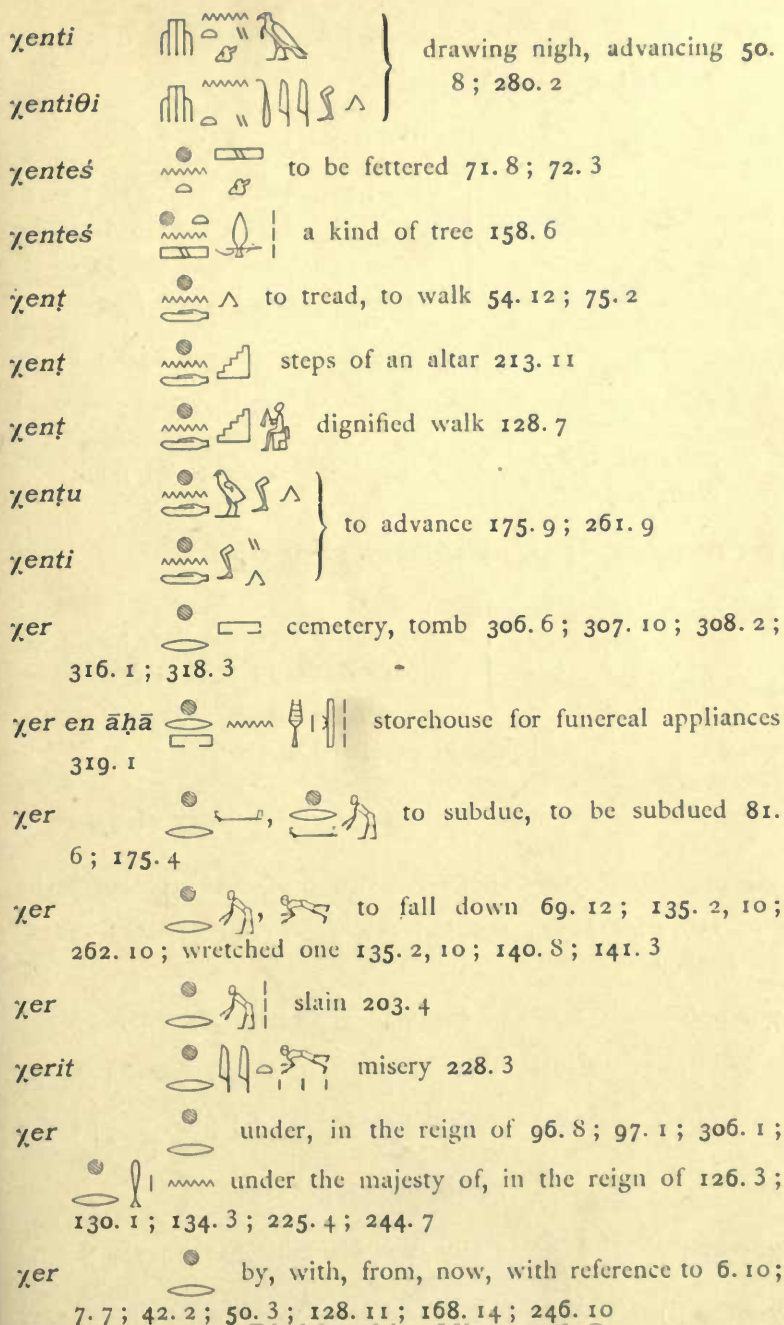 χenti
drawing nigh, advancing 50.
χentiθi 8 ; 280. 2
χenteś to be fettered 71. 8 ; 72. 3
χenteś a kind of tree 158. 6
χenṭ to tread, to walk 54. 12 ; 75. 2
χenṭ steps of an altar 213. 11
χenṭ dignified walk 128. 7
χenṭu
to advance 175. 9 ; 261. 9
χenti
χer cemetery, tomb 306. 6 ; 307. 10 ; 308. 2 ;
316. 1 ; 318. 3
χer en āḥā storehouse for funereal appliances
319. 1
χer , to subdue, to be subdued 81.
6 ; 175. 4
χer , to fall down 69. 12 ; 135. 2, 10 ;
262. 10 ; wretched one 135. 2, 10 ; 140. 8 ; 141. 3
χer slain 203. 4
χerit misery 228. 3
χer under, in the reign of 96. 8 ; 97. 1 ; 306. 1 ;
under the majesty of, in the reign of 126. 3 ;
130. 1 ; 134. 3 ; 225. 4 ; 244. 7
χer by, with, from, now, with reference to 6. 10 ;
7. 7 ; 42. 2 ; 50. 3 ; 128. 11 ; 168. 14 ; 246. 10